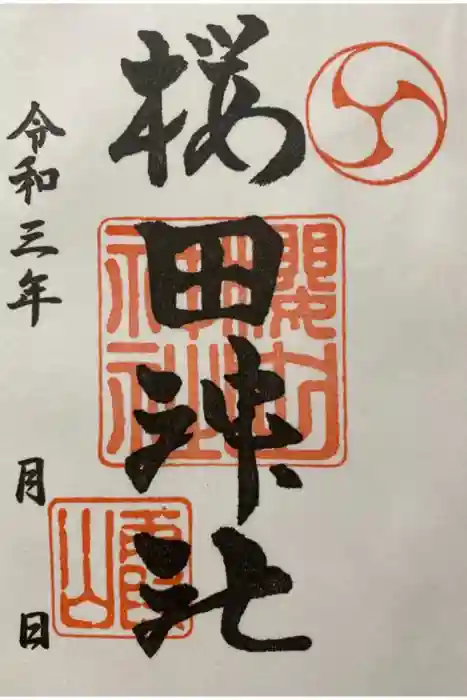 桜田神社
令和三年 月 日